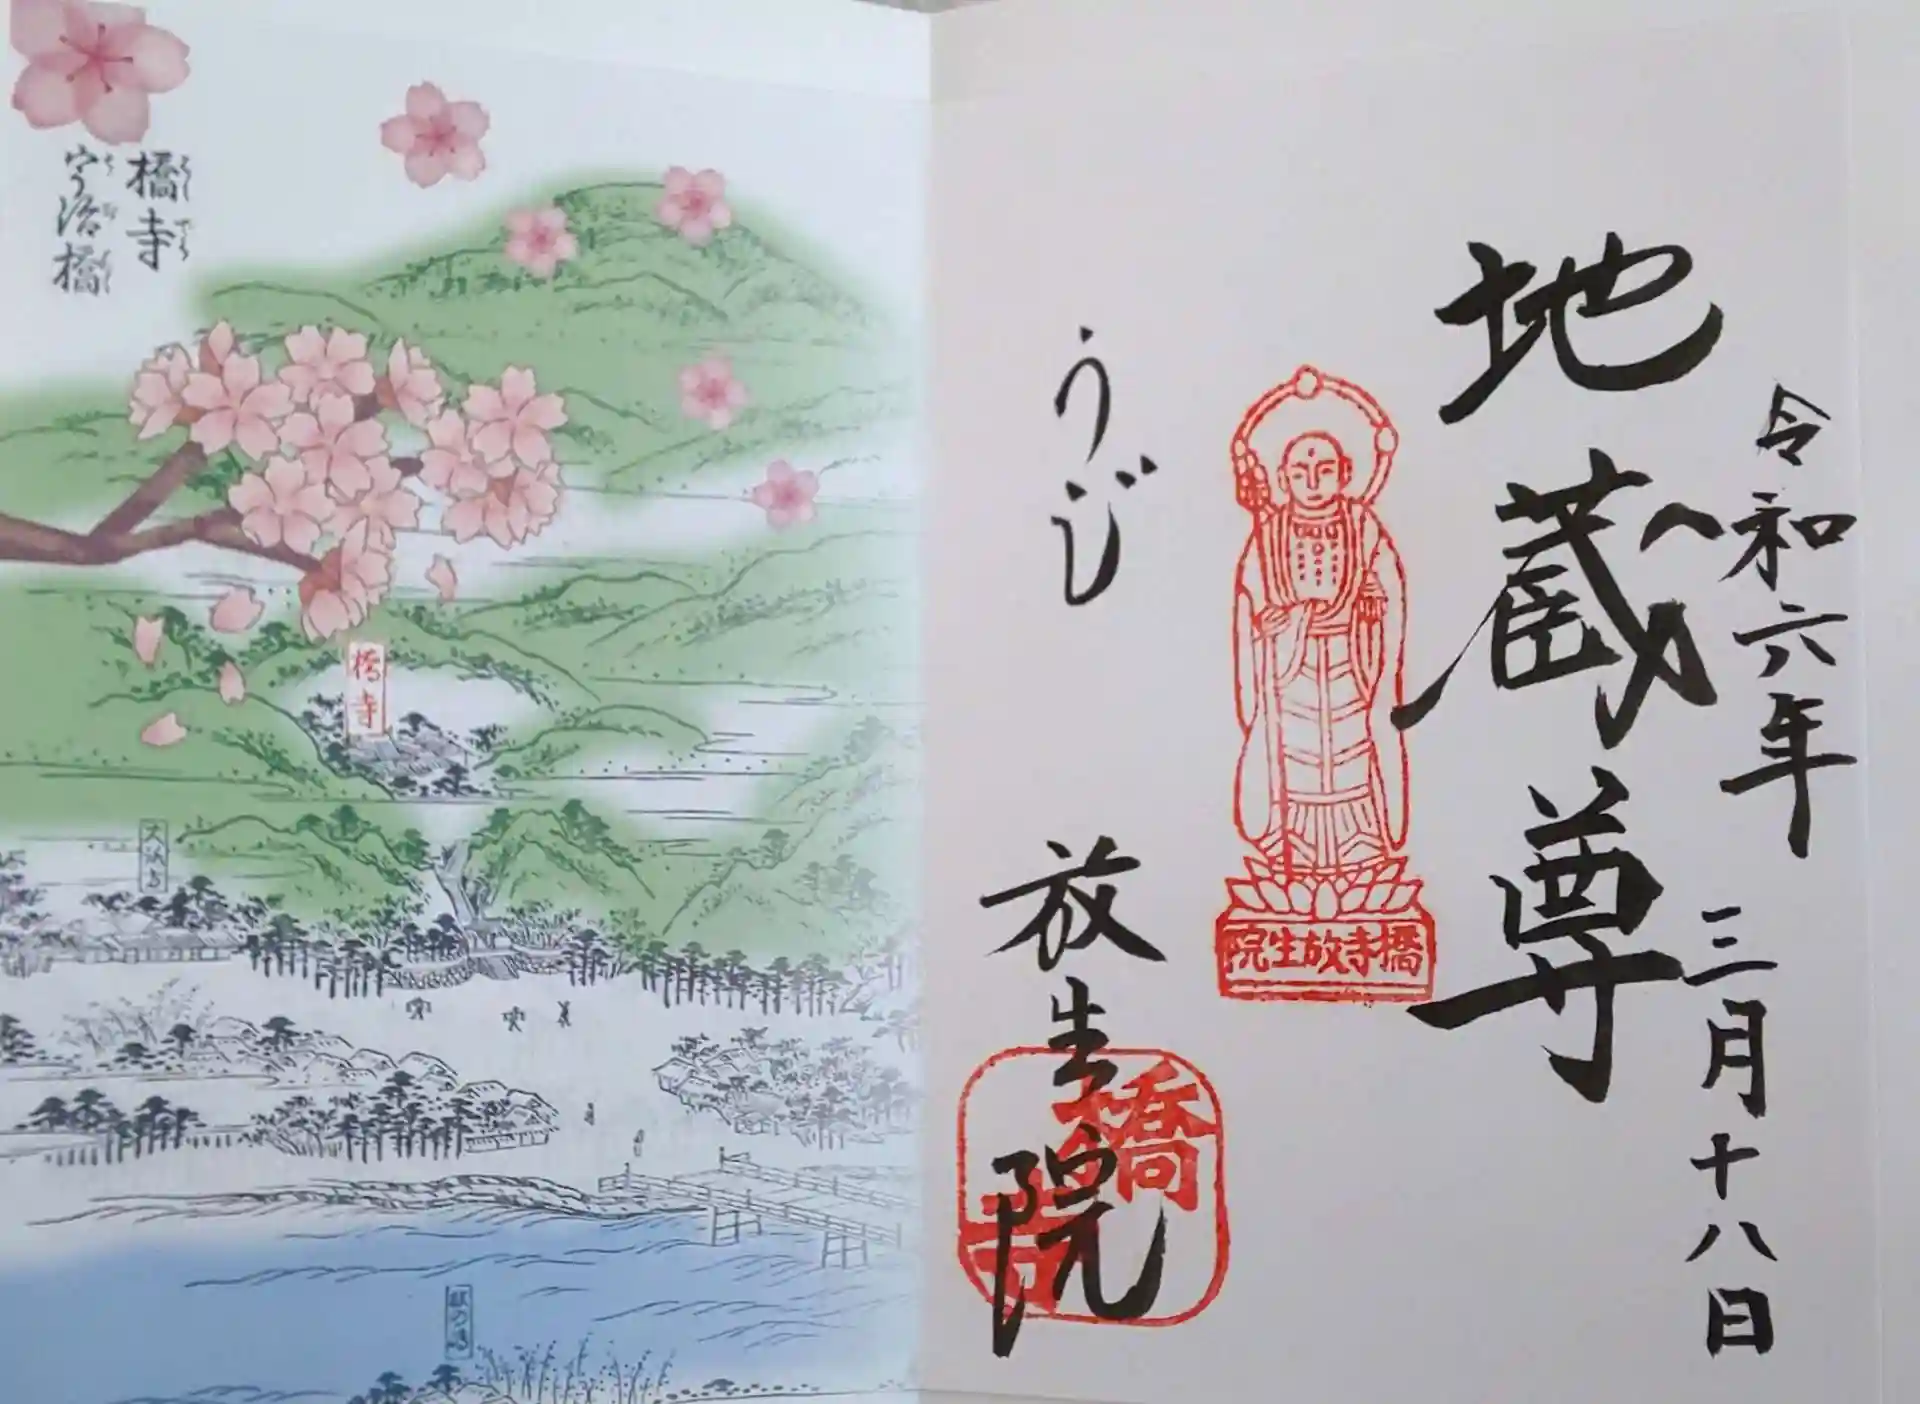 令和六年 三月十八日
地蔵尊
橋寺放生院
うじ 放生院
橋寺
橋寺
はしでら
宇治橋
橋寺